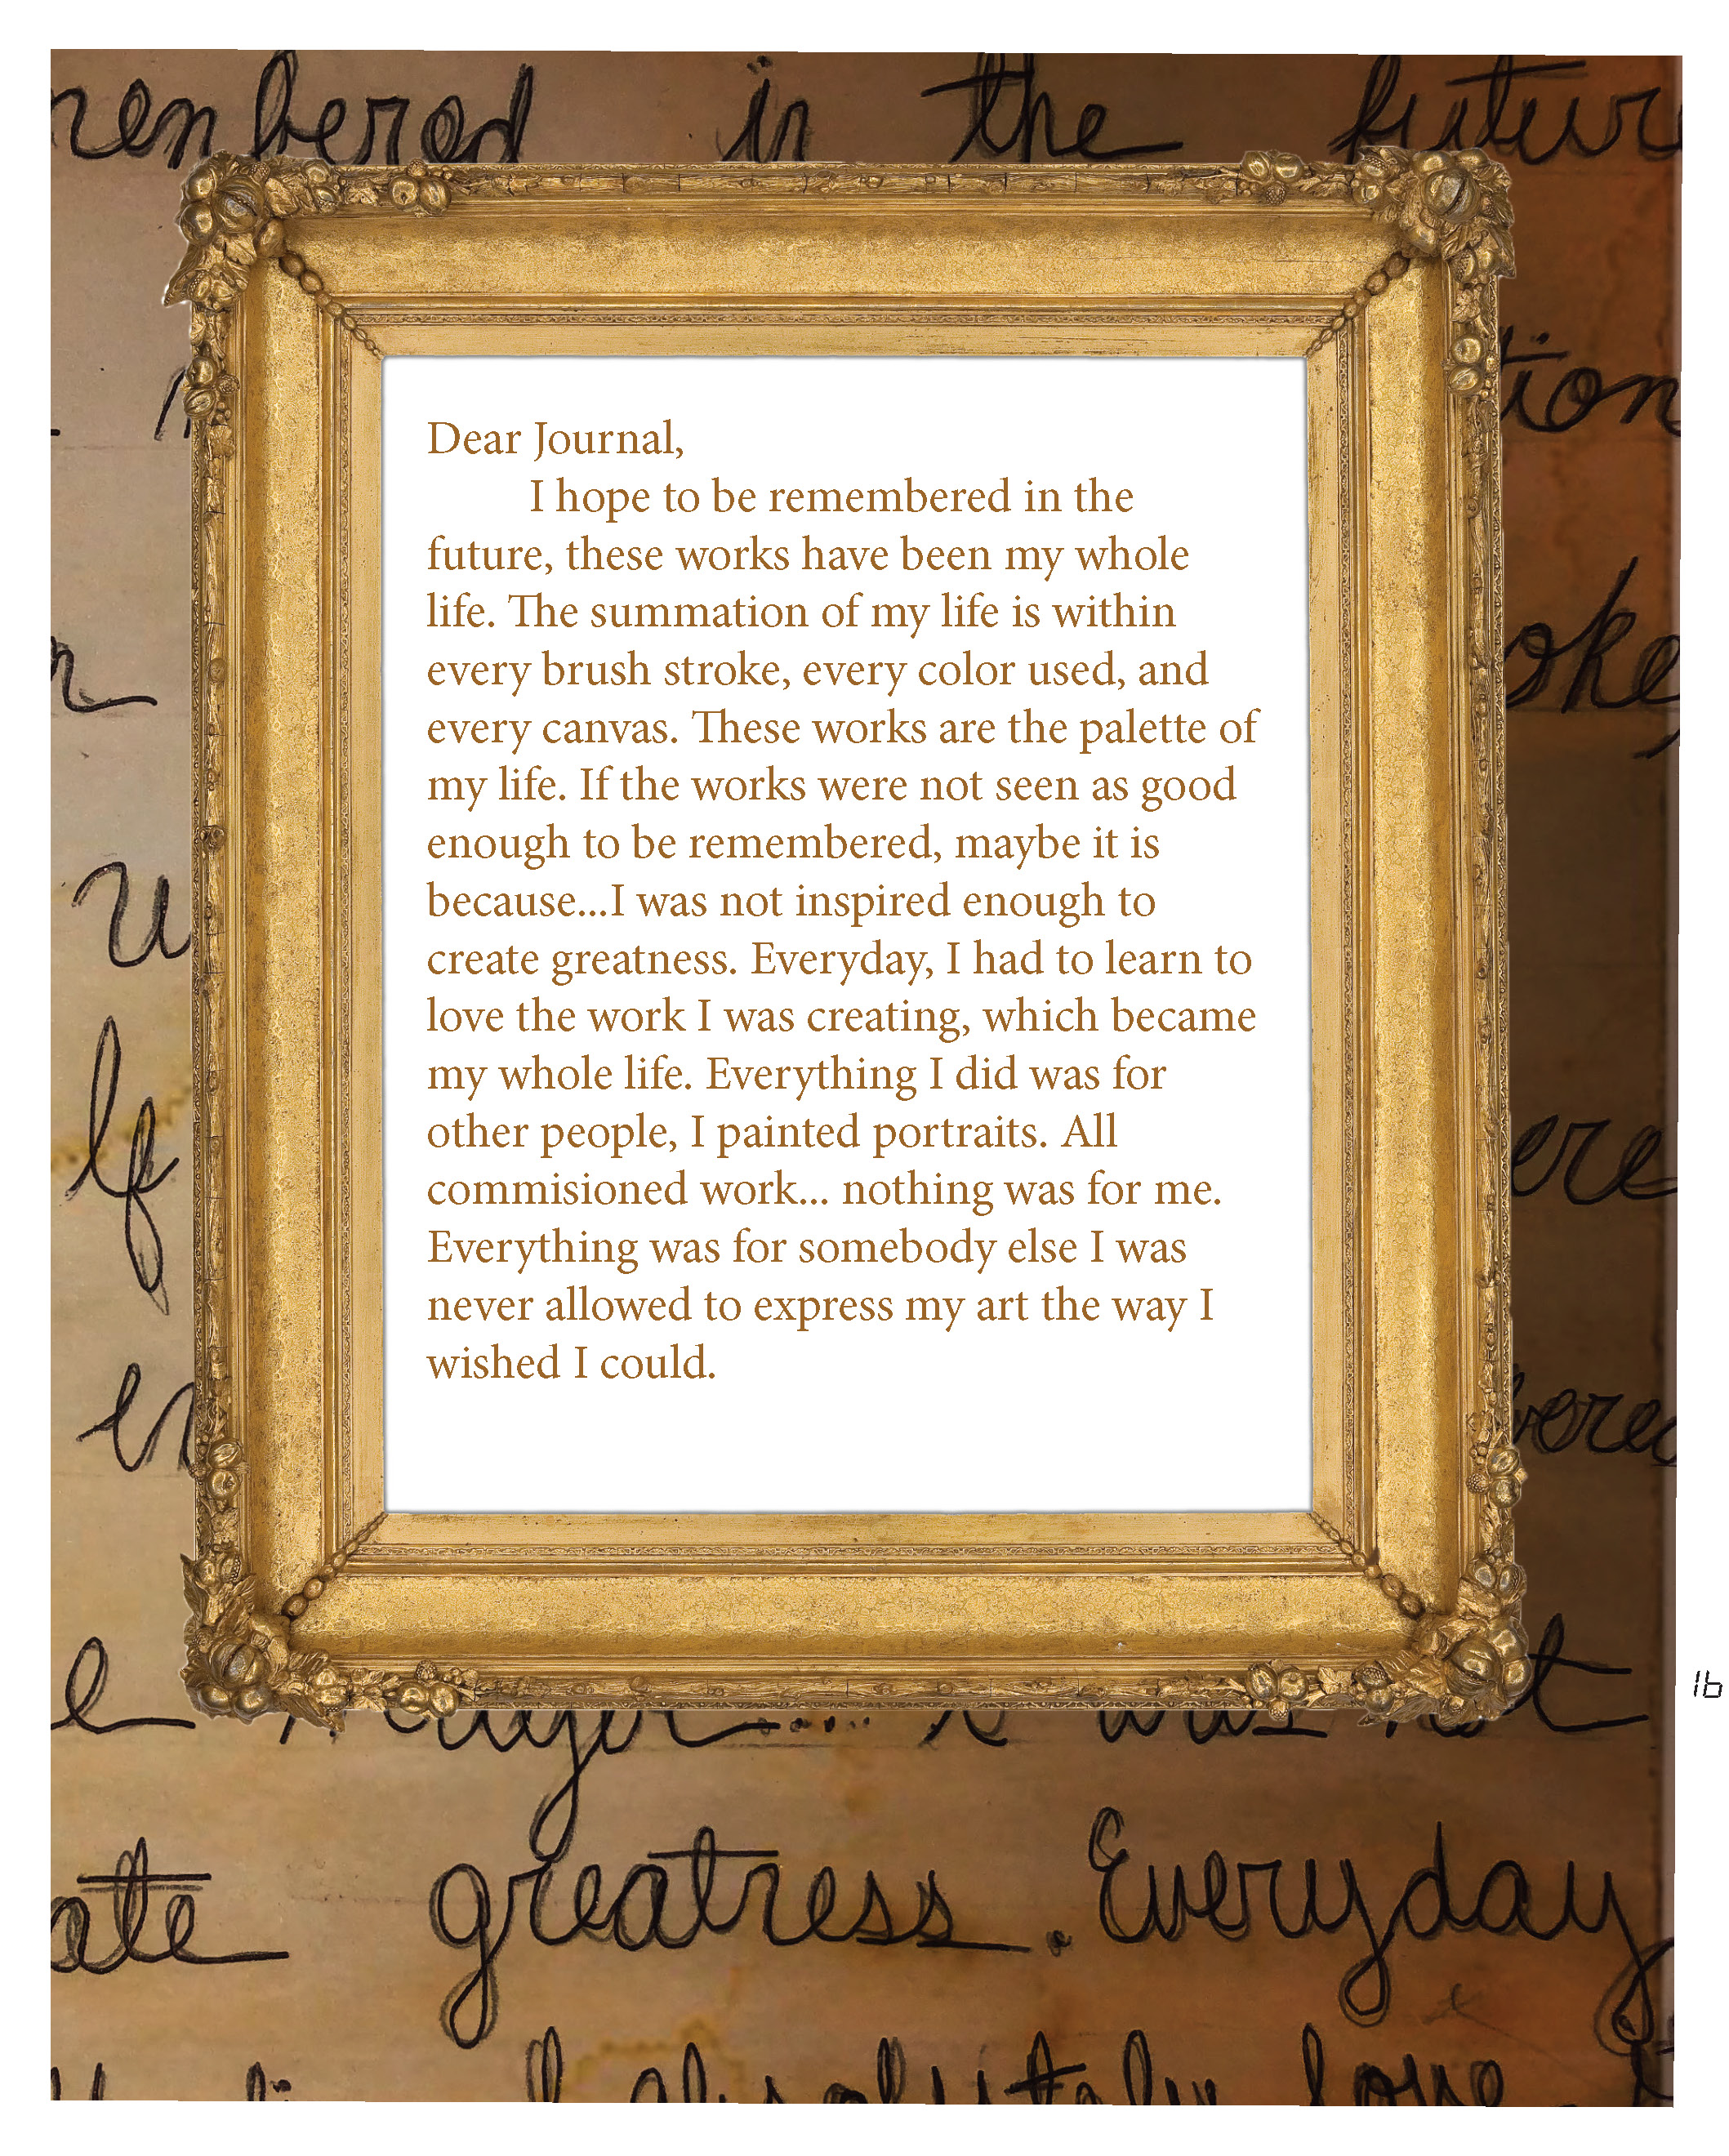 in the
Dear Journal,
I hope to be remembered in the
future, these works have been my whole
life. The summation of my life is within
every brush stroke, every color used, and
every canvas. These works are the palette of
my life. If the works were not seen as good
enough to be remembered, maybe it is
because...I was not inspired enough to
create greatness. Everyday, I had to learn to
love the work I was creating, which became
my whole life. Everything I did was for
other people, I painted portraits. All
commisioned work... nothing was for me.
Everything was for somebody else I was
never allowed to express my art the way I
wished I could.
16
greatness. Everyday